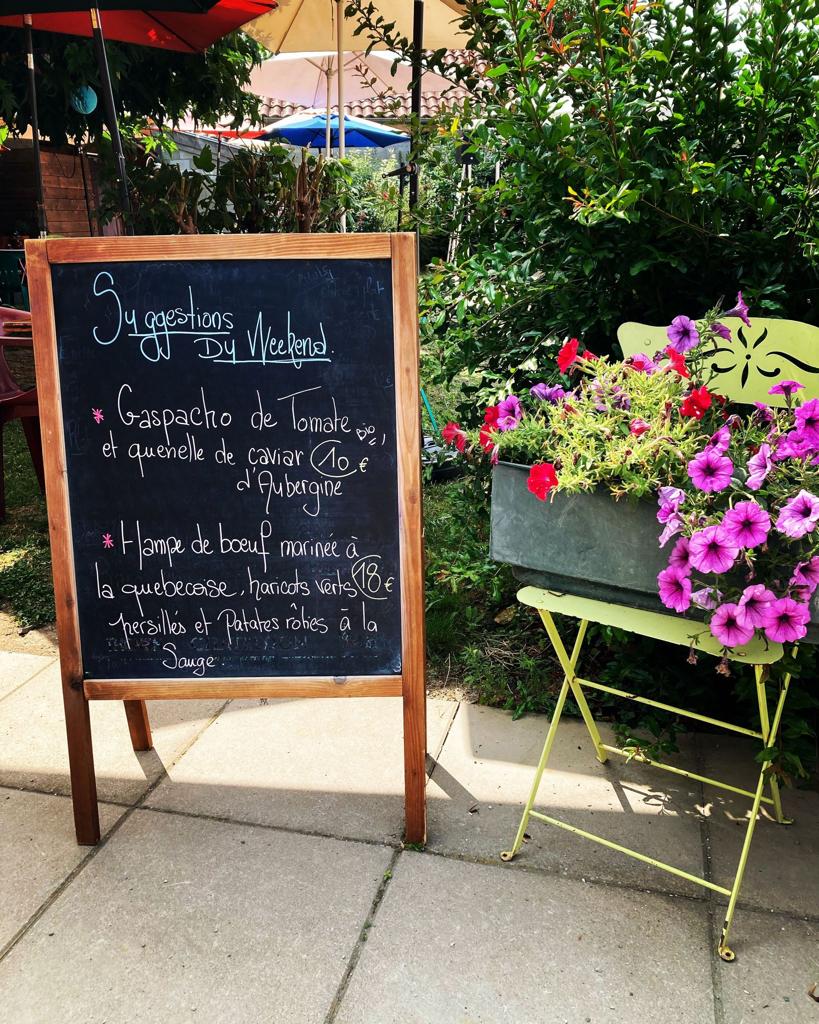 Suggestions
Du Weekend.
* Gaspacho de Tomate bio!
et quenelle de caviar 10 €
d'Aubergine
* Hampe de boeuf marinée à
la quebecoise, haricots verts 18 €
persillés et Patates rôties à la
Sauge